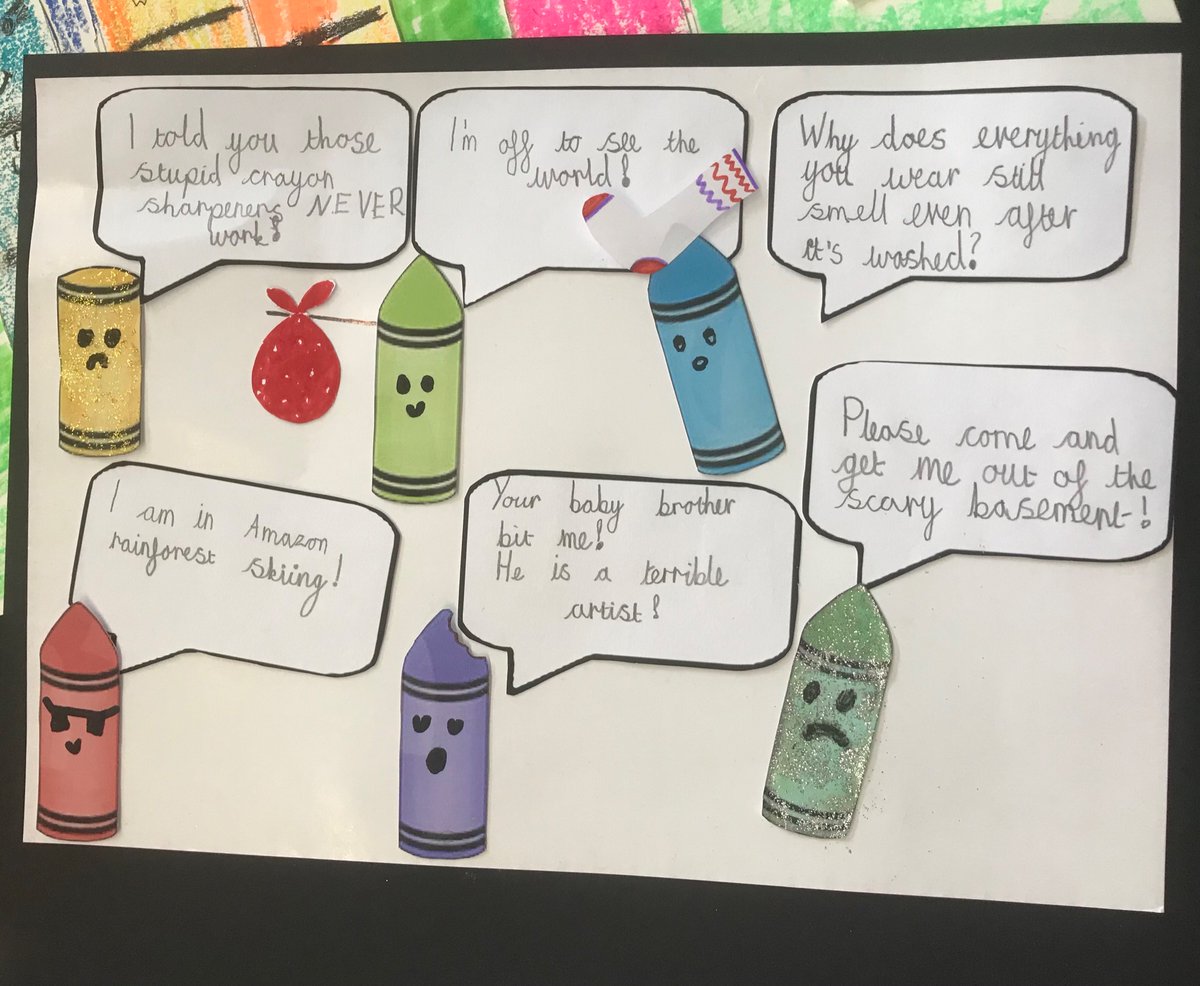 I told you those
stupid crayon
sharpeners NEVER
work!
I'm off to see the
world!
Why does everything
you wear still
smell even after
it's washed?
I am in Amazon
rainforest skiing!
Your baby brother
bit me!
He is a terrible
artist!
Please come and
get me out of the
scary basement!